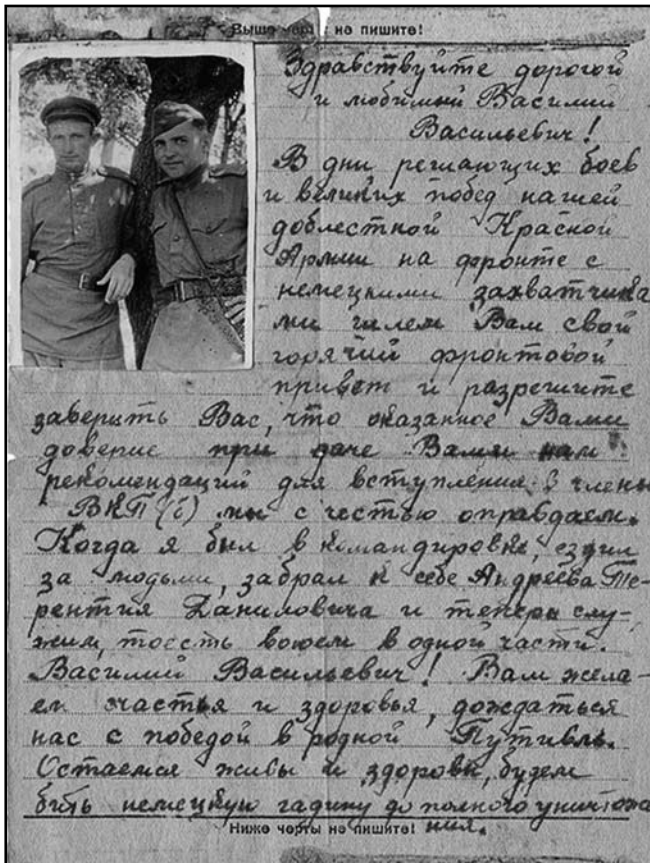 Выше черты не пишите!
Здравствуйте дорогой
и любимый Василий
Васильевич!
В дни решающих боев
и великих побед нашей
доблестной Красной
Армии на фронте с
немецкими захватчика
ми шлем Вам свой
горячий фронтовой
привет и разрешите
заверить Вас, что оказанное Вами
доверие при даче Вами нам
рекомендаций для вступления в члены
ВКП(б) мы с честью оправдаем.
Когда я был в командировке, ездил
за людьми, забрал к себе Андреева Те-
рентия Даниловича и теперь слу-
жим, тоесть воюем в одной части.
Василий Васильевич! Вам жела-
ем счастья и здоровья, дождаться
нас с победой в родной Путивль.
Остаемся живы и здоровы, будем
бить немецкую гадину до полного уничтоже
ния.
Ниже черты не пишите!